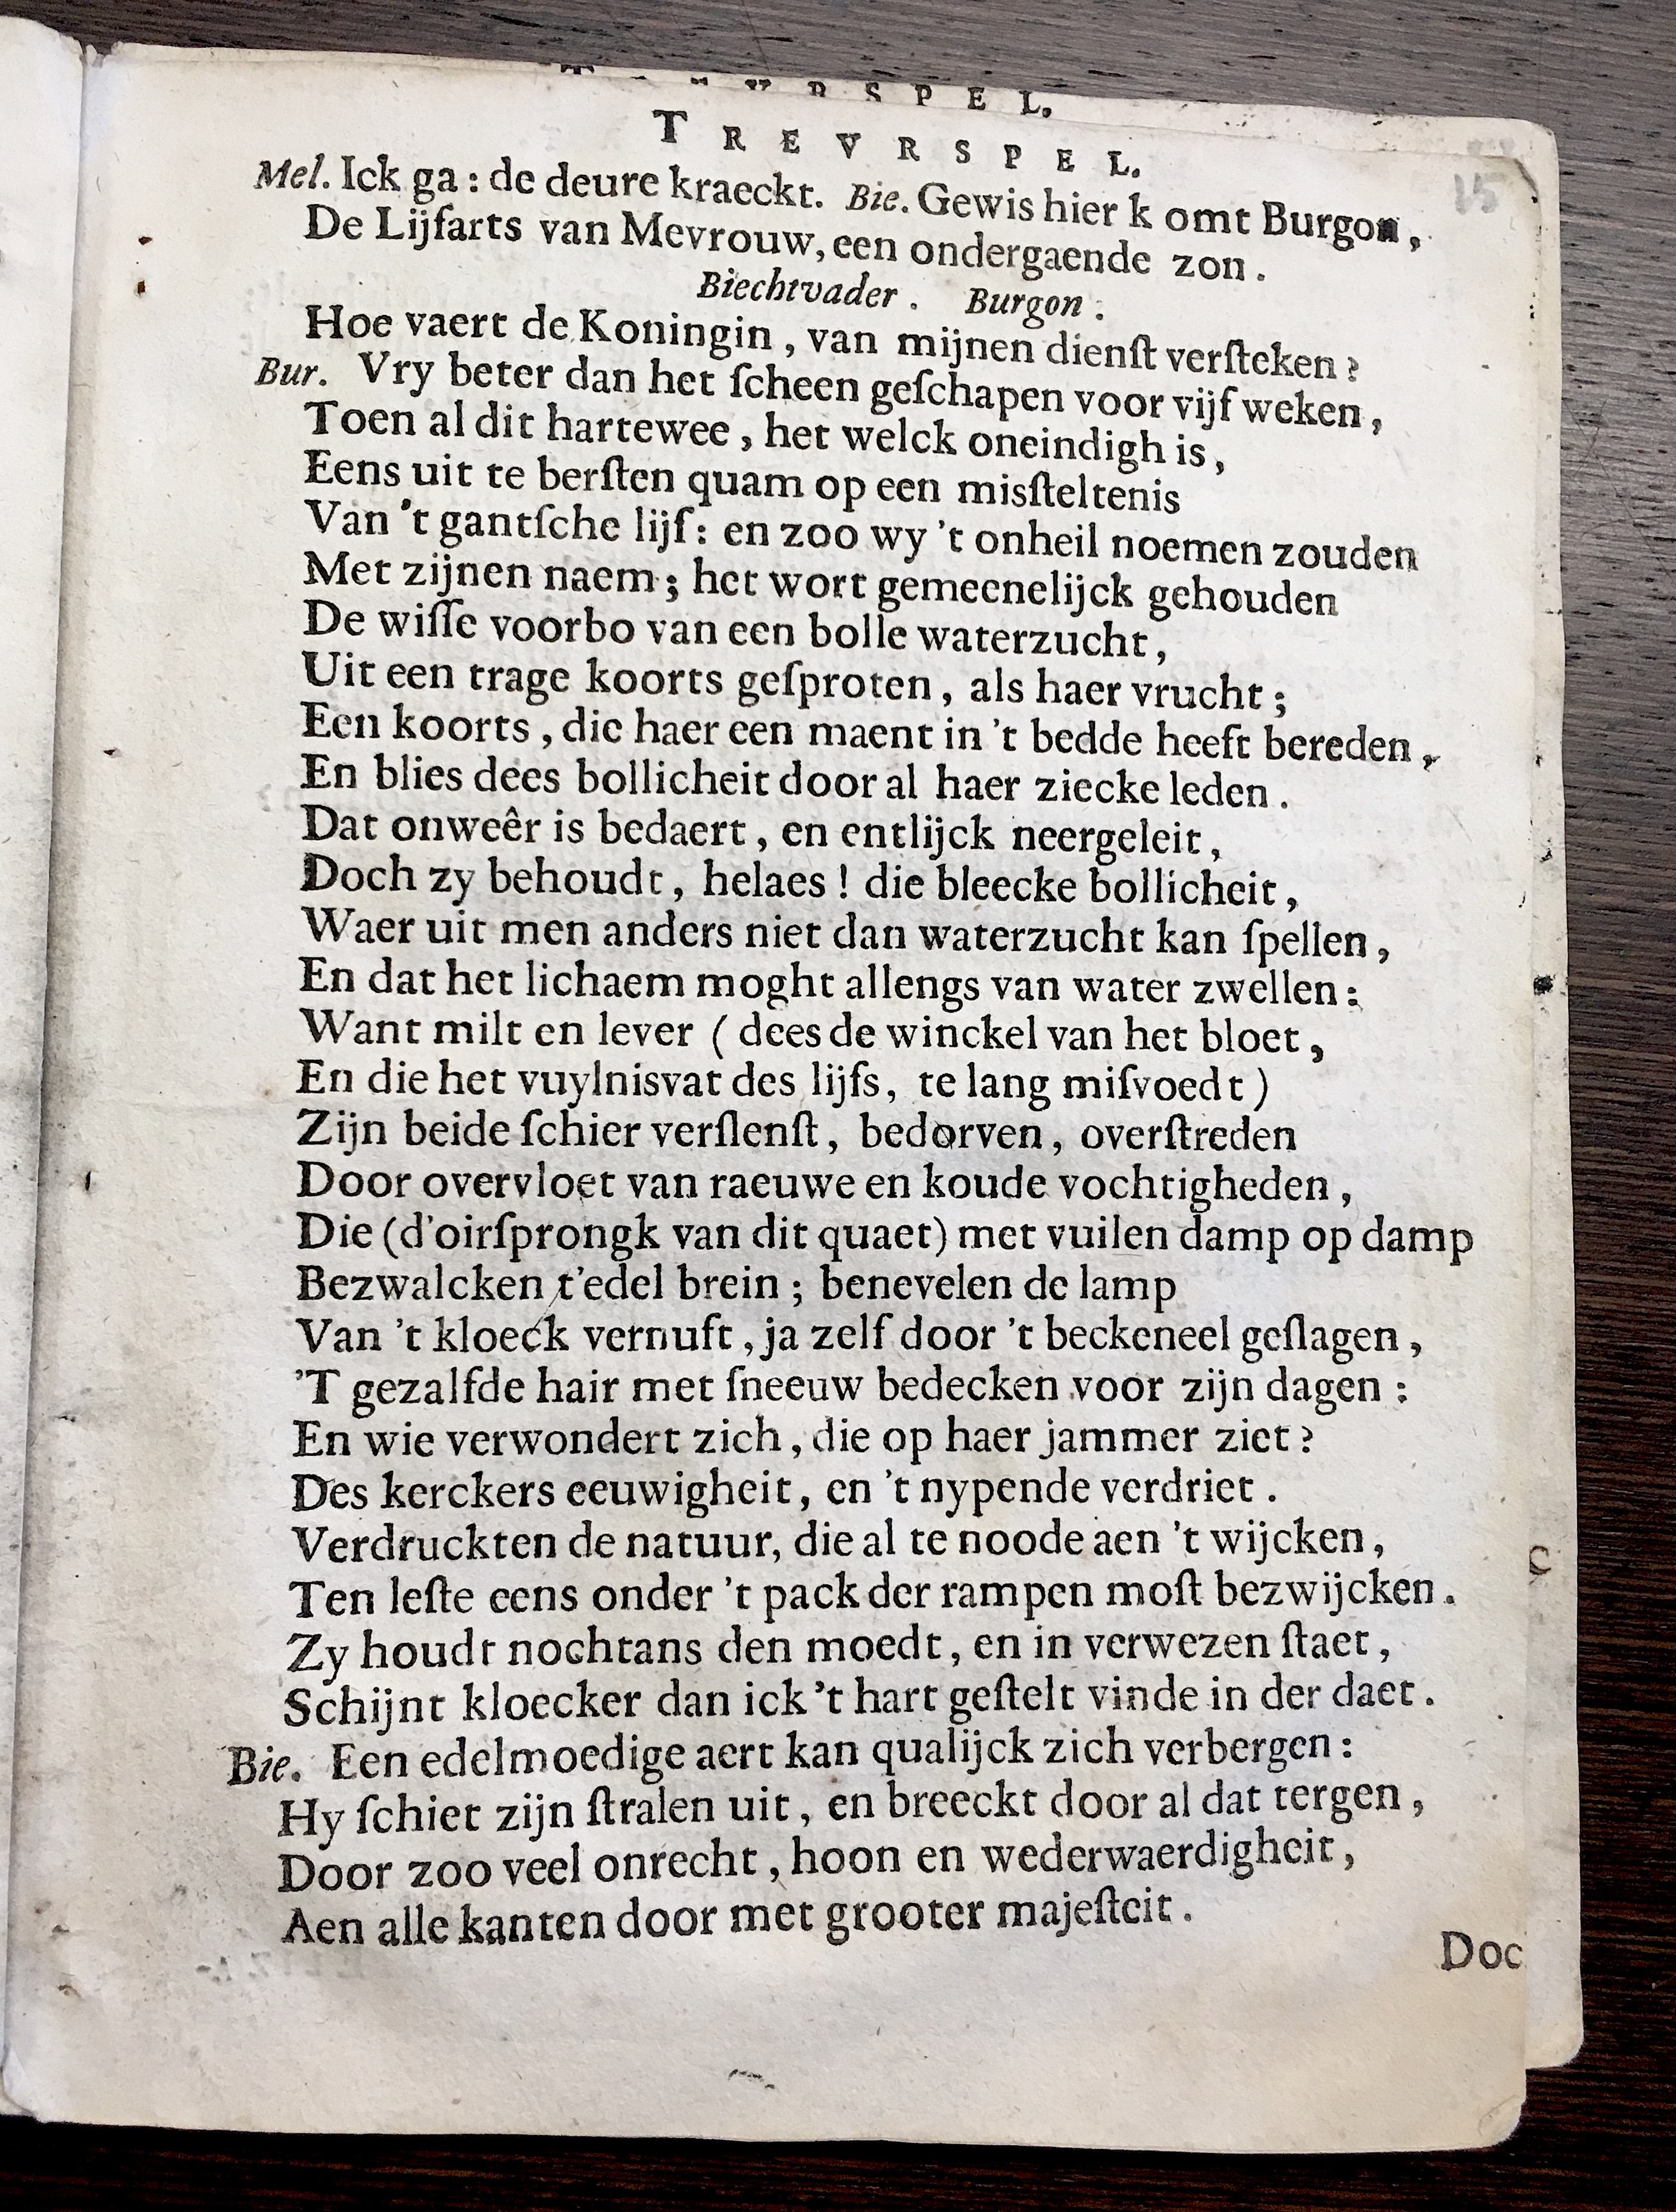 R S P E L.
T R E V R S P E L.
15
Mel. Ick ga: de deure kraeckt. Bie. Gewis hier k omt Burgon,
De Lijfarts van Mevrouw, een ondergaende zon.
Biechtvader. Burgon:
Hoe vaert de Koningin, van mijnen dienſt verſteken?
Bur. Vry beter dan het ſcheen geſchapen voor vijf weken,
Toen al dit hartewee, het welck oneindigh is,
Eens uit te berſten quam op een misſteltenis
Van 't gantſche lijf: en zoo wy 't onheil noemen zouden
Met zijnen naem; het wort gemeenelijck gehouden
De wiſſe voorbo van een bolle waterzucht,
Uit een trage koorts geſproten, als haer vrucht;
Een koorts, die haer een maent in 't bedde heeft bereden,
En blies dees bollicheit door al haer ziecke leden.
Dat onweêr is bedaert, en entlijck neergeleit,
Doch zy behoudt, helaes! die bleecke bollicheit,
Waer uit men anders niet dan waterzucht kan ſpellen,
En dat het lichaem moght allengs van water zwellen:
Want milt en lever (dees de winckel van het bloet,
En die het vuylnisvat des lijfs, te lang miſvoedt)
Zijn beide ſchier verſlenſt, bedorven, overſtreden
Door overvloet van raeuwe en koude vochtigheden,
Die (d'oirſprongk van dit quaet) met vuilen damp op damp
Bezwalcken t'edel brein; benevelen de lamp
Van 't kloeck vernuft, ja zelf door 't beckeneel geſlagen,
'T gezalfde hair met ſneeuw bedecken voor zijn dagen:
En wie verwondert zich, die op haer jammer ziet?
Des kerckers eeuwigheit, en 't nypende verdriet.
Verdruckten de natuur, die al te noode aen 't wijcken,
Ten leſte eens onder 't pack der rampen moſt bezwijcken.
Zy houdt nochtans den moedt, en in verwezen ſtaet,
Schijnt kloecker dan ick 't hart geſtelt vinde in der daet.
Bie. Een edelmoedige aert kan qualijck zich verbergen:
Hy ſchiet zijn ſtralen uit, en breeckt door al dat tergen,
Door zoo veel onrecht, hoon en wederwaerdigheit,
Aen alle kanten door met grooter majeſteit.
Doc